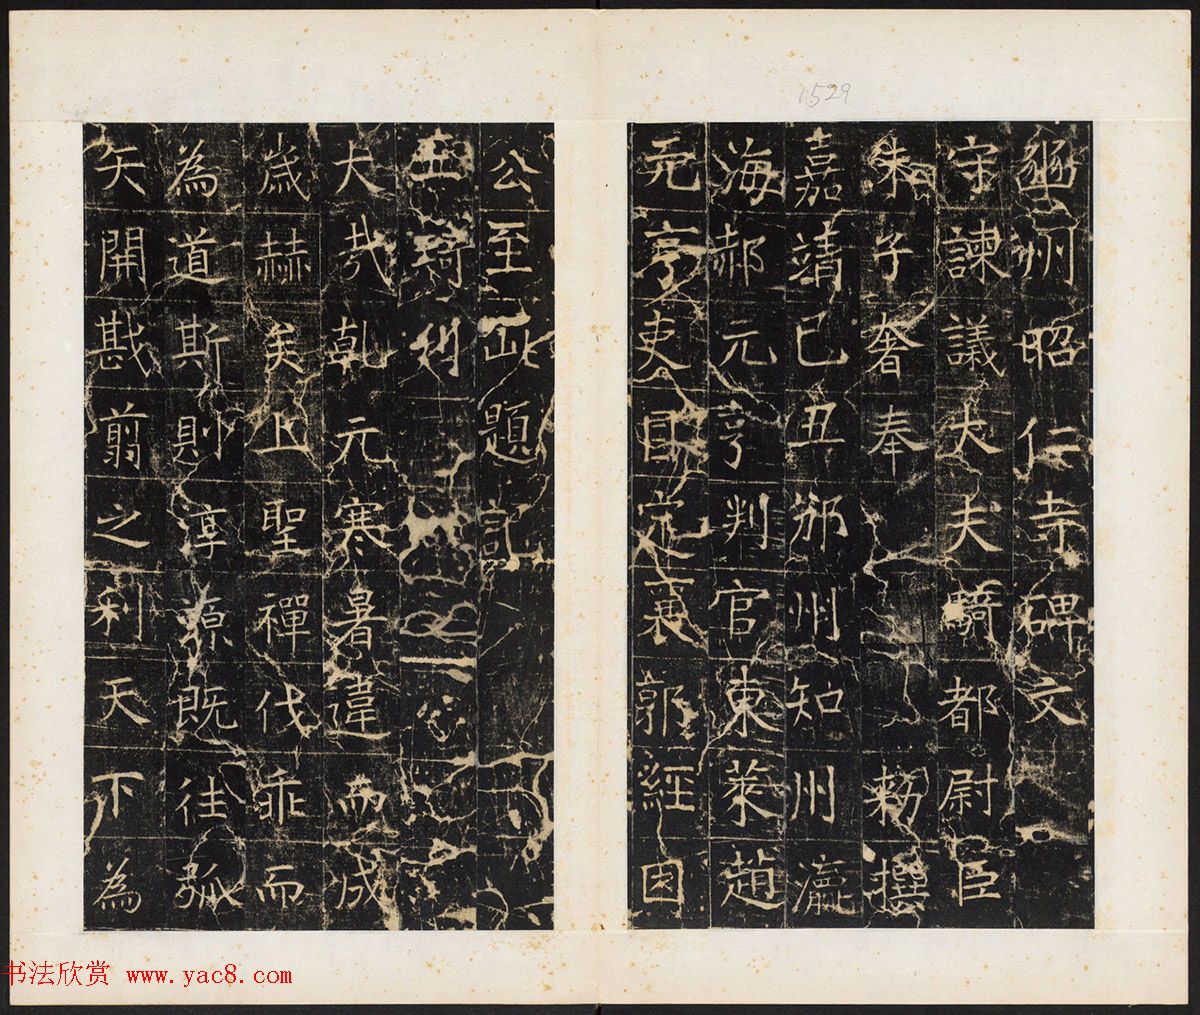 1529
豳州昭仁寺碑文
守諫議大夫騎都尉臣
朱子奢奉 勑撰
嘉靖己丑邠州知州瀛
海郝元亨判官東萊趙
元亨吏目定襄郭經因
公至此題記
大哉乹元寒暑違而成
歲赫矣上聖禪伐乖而
為道斯則淳源既往弧
矢開戡翦之利天下為
书法欣赏 www.yac8.com